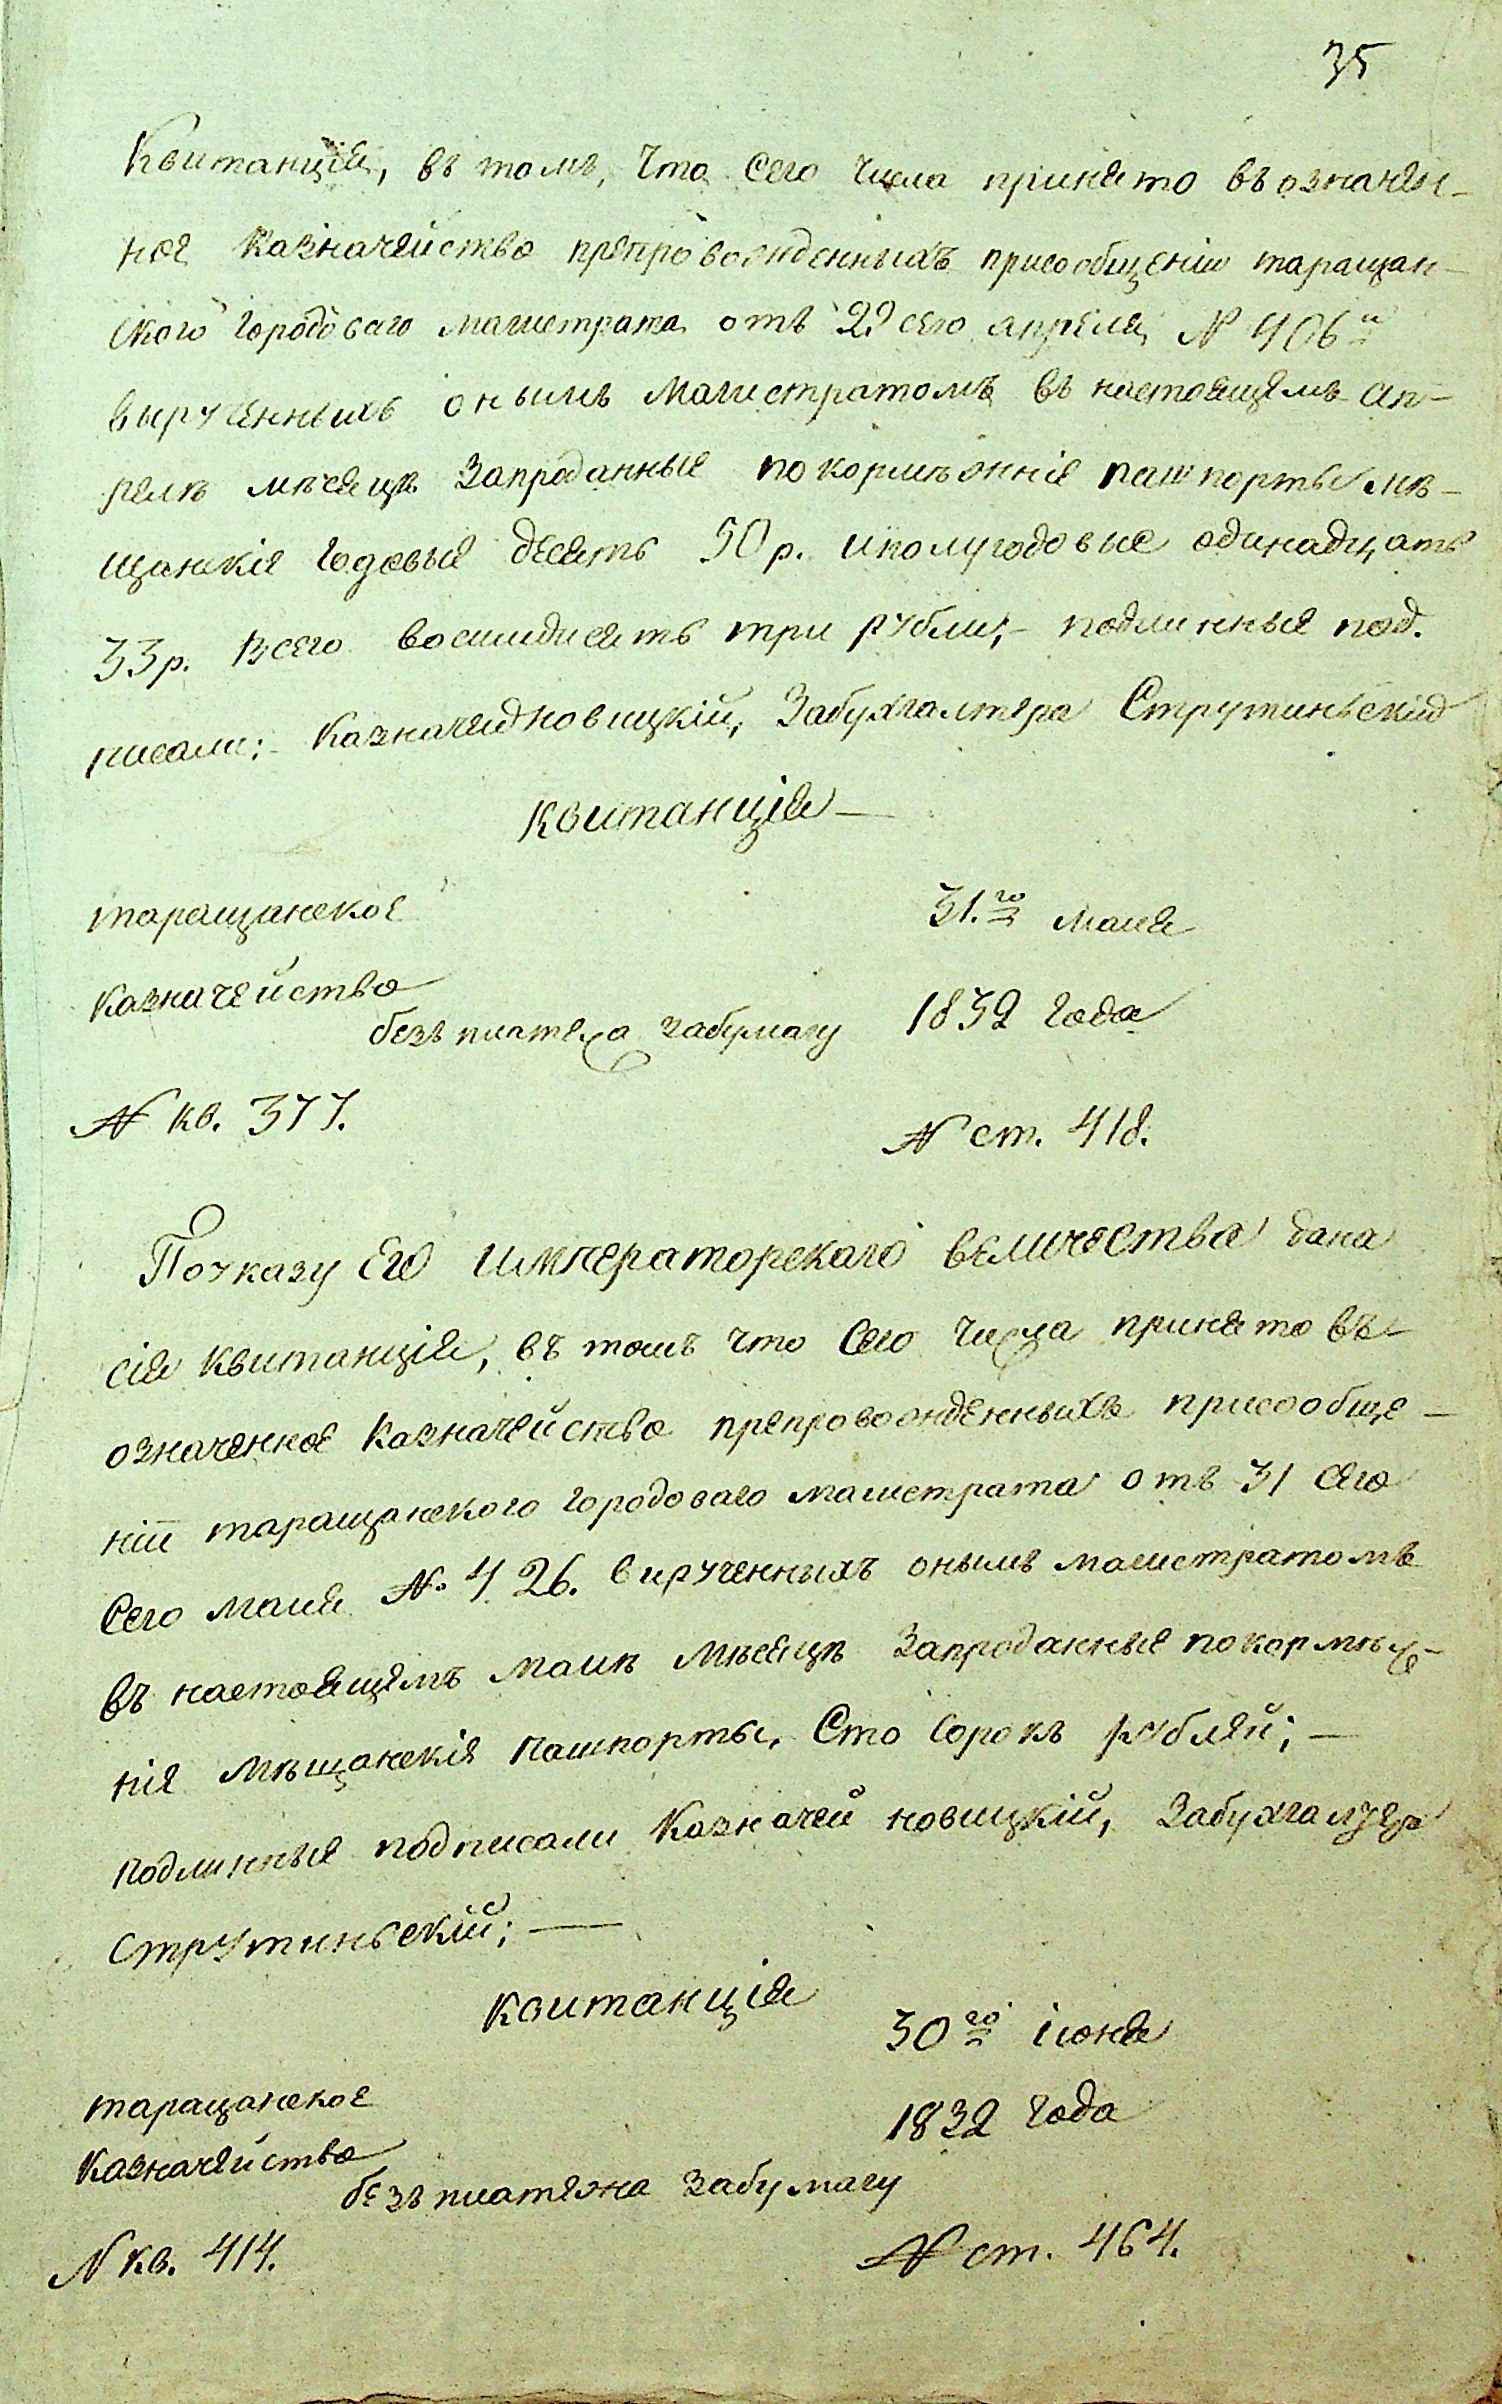 35
Квитанція, въ томъ, что сего числа принято въ означен-
ное казначейство препровожденныхъ присообщеніи таращан-
ского городоваго магистрата отъ 29 сего апреля № 406и
вырученныхъ онымъ магистратомъ въ настоящемъ ап-
реле мѣсяцѣ запроданные покормежніе пашпорты мѣ-
щанскія годовые десять 50 р. иполугодовые одинадцать
33 р. всего восимдисятъ три рубли; – подлинные под.
писали; – казначей новицкій, Забухгалтера Струтиньскій
Квитанція –
таращанское
31.го маия
казначейство
1832 года
безъ платежа забумагу
№ кв. 377.
№ ст. 418.
Поуказу Его императорскаго величества дана
сія квитанція, въ томъ что сего числа принято въ
означенное казначейство препровожденныхъ присообще-
ніи таращанского городоваго магистрата отъ 31 сего
сего маия № 426. вирученныхъ онымъ магистратомъ
въ настоящемъ маиѣ мѣсяцѣ запроданные покормеж-
ніе мѣщанскія пашпорты, Сто сорокъ рублей; –
подлинные подписали казначей новицкій, Забухгалтера
Струтиньскій; –
Квитанція
30го іюня
таращанское
1832 года
казначейство
безъ платежа забумагу
№ кв. 414.
№ ст. 464.